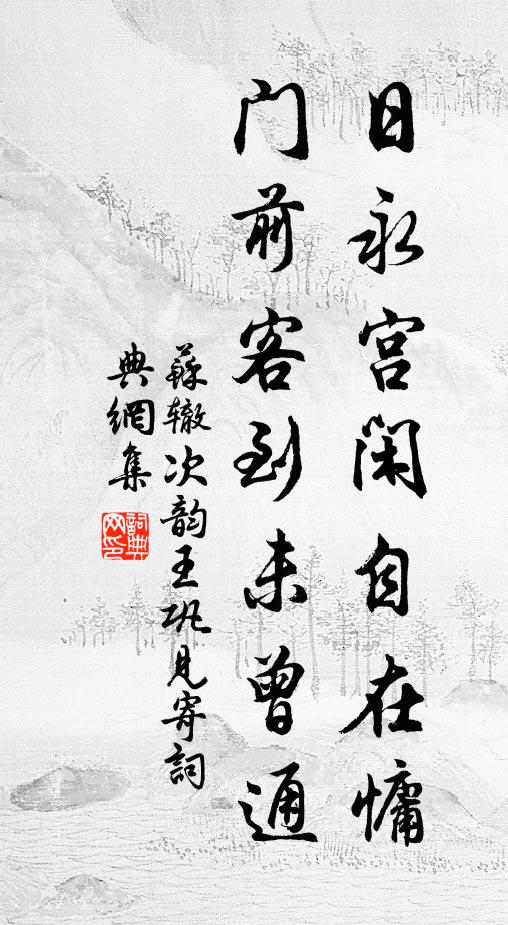 日永宫闲自在慵
门前客到未曾通
蘇辙次韵王巩見寄詞
典網集
詞典网印